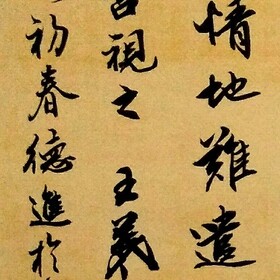 情地難遣
視之 王義
初春德進於